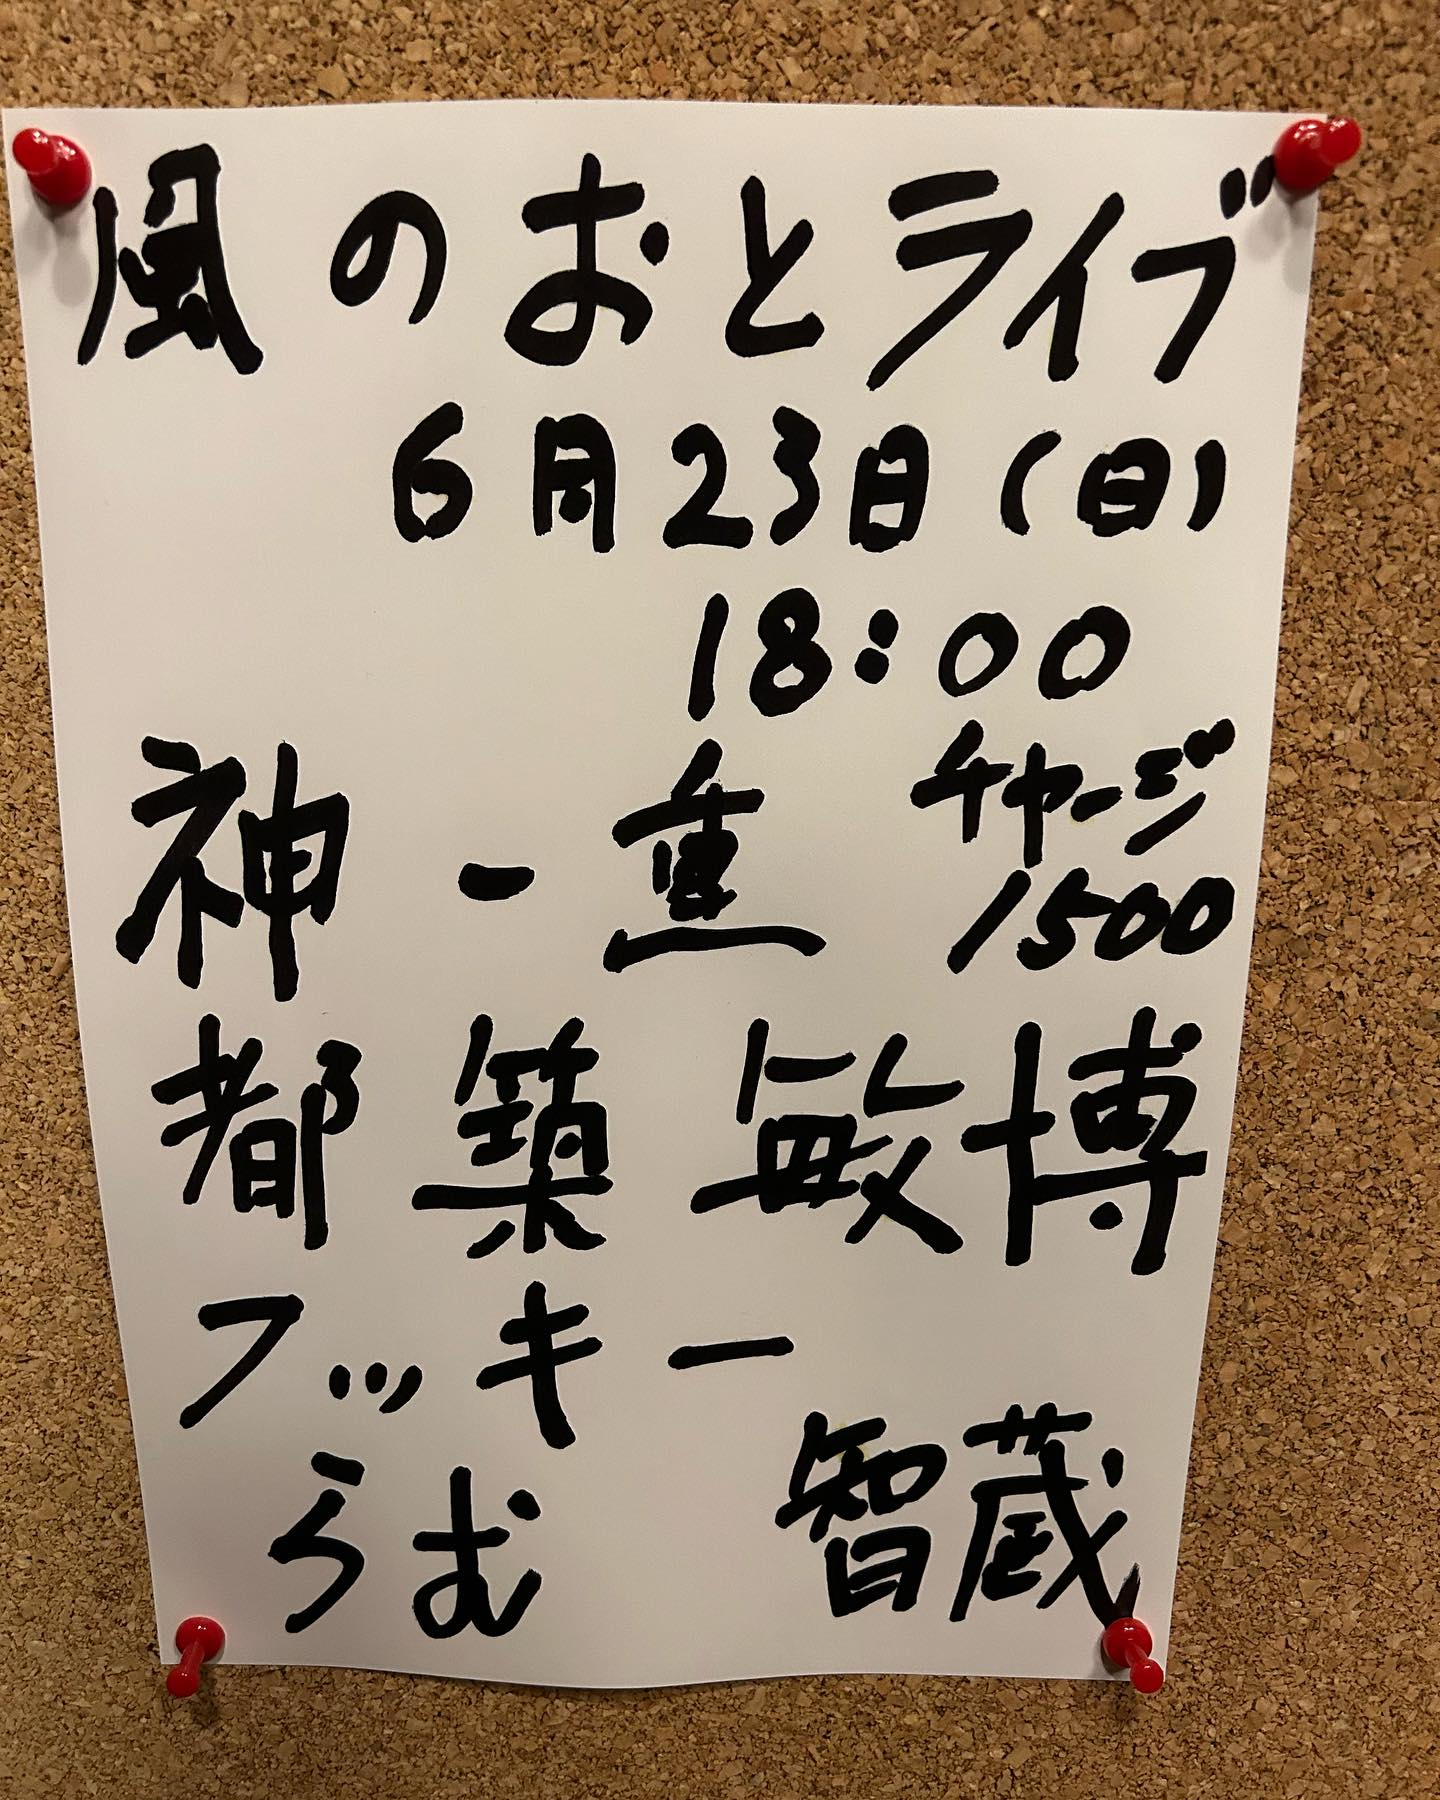 風のおとライブ
6月23日(日)
18:00
神 一
チャージ
1500
都築 敏博
フッキー
らむ 智蔵